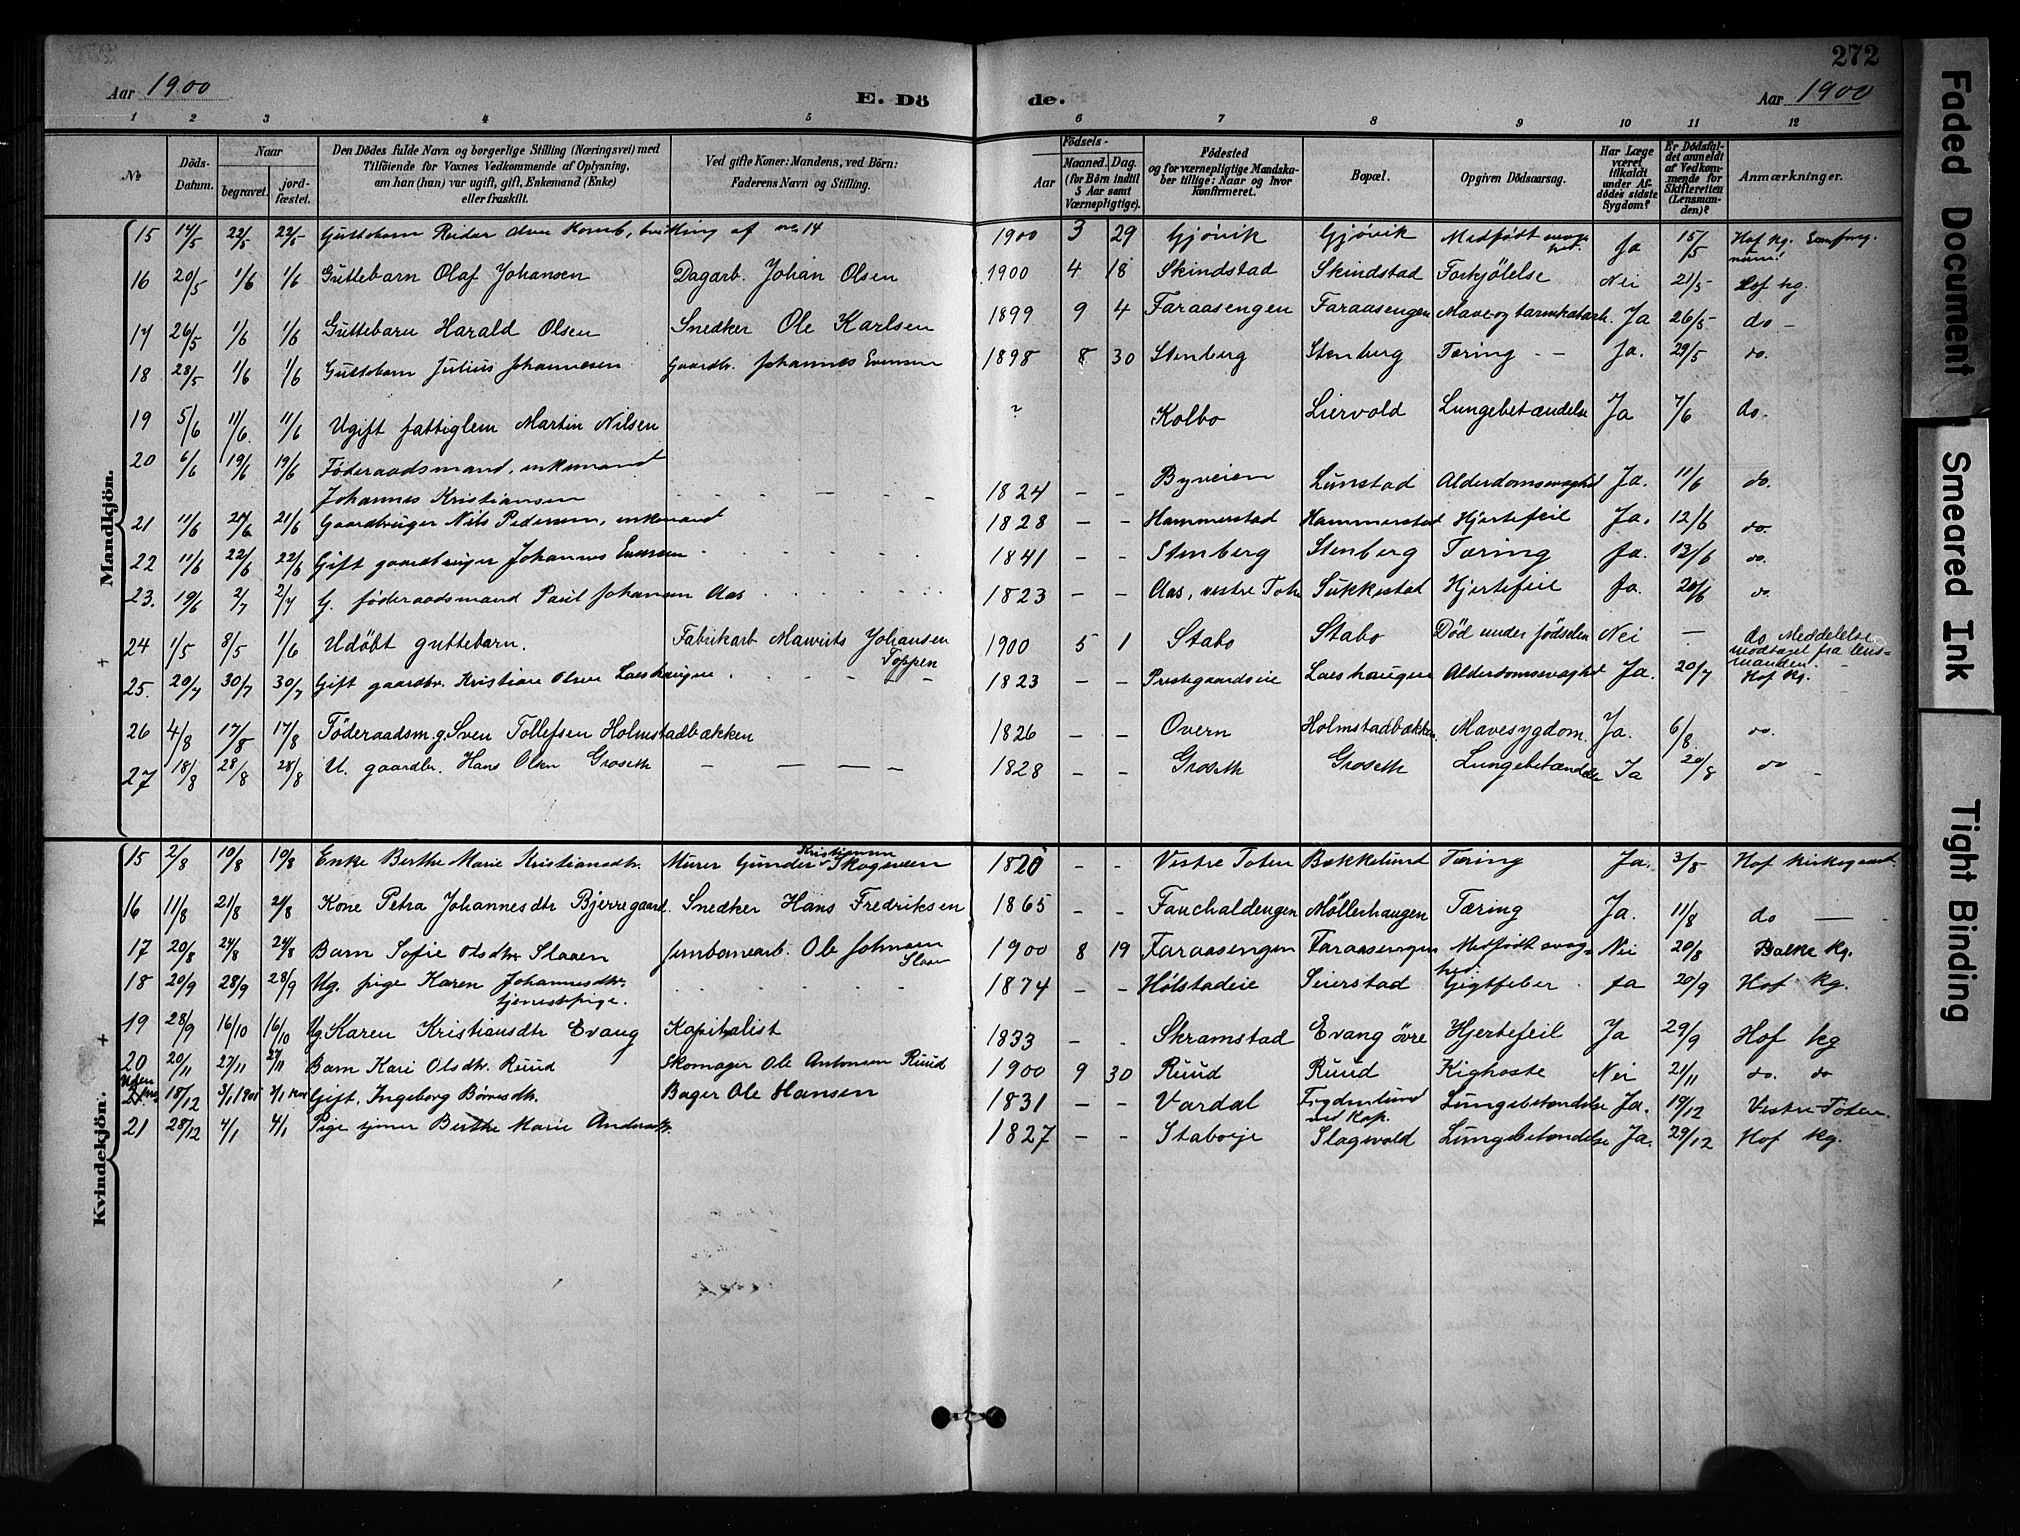 272
Aar 1900
E. Dö de.
Aar 1900
1 2 3 4 5 6 7 8 9 10 11 12
№
Döds-Datum.
Naar
begravet.
jord-fæstet.
Den Dödes fulde Navn og borgerlige Stilling (Næringsvei) med
Tilföiende for Voxnes Vedkommende af Oplysning,
om han (hun) var ugift, gift, Enkemand (Enke)
eller fraskilt.
Ved gifte Koner: Mandens, ved Börn:
Faderens Navn og Stilling.
Födsels-
Aar
Maaned. Dag.
(for Börn indtil
5 Aar samt
Værnepligtige).
Födested
og for værnepligtige Mandska-
ber tillige: Naar og hvor
konfirmeret.
Bopæl.
Opgiven Dödsaarsag.
Har Læge
været
tilkaldt
under Af-
dödes sidste
Sygdom?
Er Dödsfal-
det anmeldt
af Vedkom-
mende for
Skifteretten
(Lensman-
den)?
Anmærkninger.
Mandkjön.
15 14/5 22/5 22/5 Guttebarn Reidar af no 14 1900 3 29 Gjövik Gjövik Medfödt svag-hed. Ja 15/5 Hof kg.
16 20/5 1/6 1/6 Guttebarn Olaf Johansen Dagarb. Johan Olsen 1900 4 18 Skindstad Skindstad Forkjölelse Nei 21/5 Hof kg.
17 26/5 1/6 1/6 Guttebarn Harald Olsen Snedker Ole Karlsen 1899 9 4 Faraasengen Faraasengen Mave og tarmkatarh. Ja 26/5 do -
18 28/5 1/6 1/6 Guttebarn Julius Johannesen Gaardbr. Johannes Evensen 1898 8 30 Stenberg Stenberg Tæring - - Ja. 29/5 do.
19 5/6 11/6 11/6 Ugift fattiglem Martin Nilsen ? Kolbo Liervold Lungebetændelse Ja 7/6 do.
20 6/6 19/6 19/6 Föderaadsmand, enkemand
Johannes Kristiansen 1824 - - Byveien Lunstad Alderdomssvaghed Ja. 11/6 do.
21 11/6 21/6 21/6 Gaardbruger Nils Pedersen, enkemand 1828 - - Hammerstad Hammerstad Hjertefeil Ja. 12/6 do.
22 11/6 22/6 22/6 Gift gaardbruger Johannes Evensen 1841 - - Stenberg Stenberg Tæring Ja. 13/6 do.
23. 19/6 2/7 2/7 G. föderaadsmand Paul Johansen Aas 1823 - - Aas, vestre Toten Sukkestad Hjertefeil Ja. 20/6 do.
24 1/5 8/5 1/6 Udöbt guttebarn. Fabrikarb Mawrits Johansen
Toppen 1900 5 1 Stabo Stabo Död under födselen Nei - do Meddelelse
modtaget fra lens-
manden.
25. 20/7 30/7 30/7 Gift gaardbr. Kristian Olsen Laeshaugen 1823 - - Prestegaardseie Laeshaugen Alderdomssvaghed Ja. 20/7 Hof kg.
26 4/8 17/8 17/8 Föderaadsm. g. Sven Tollefsen Holmstadbækken 1826 - - Overn Holmstadbækken. Mavesygdom. Ja. 6/8 do.
27 18/8 28/8 28/8 U. gaardbr. Hans Olsen Groseth 1828 - - Groseth Groseth Lungebetændelse Ja 20/8 do -
Kvindekjön.
15 2/8 10/8 10/8 Enke Berthe Marie Kristiansdtr. Murer Gunder Kristiansen Skogsveen 1820 - - Vestre Toten Bækkelund Tæring Ja. 3/8 Hof kirkegaard.
16 11/8 21/8 21/8 Kone Petra Johannesdtr Bjerregaard. Snedker Hans Fredriksen 1865 - - Fauchaldengen Möllerhaugen Tæring Ja. 11/8 do
17 20/8 24/8 24/8 Barn Sofie Olsdtr. Slaaen Jernbanearb. Ole Johnsen
Slaaen 1900 8 19 Faraasengen Faraasengen Medfödt svag-hed Nei 20/8 Balke kg.
18 20/9 28/9 28/9 Ug. pige Karen Johannesdtr.
tjenestepige. 1874 - - Hölstadeie Seierstad Gigtfeber Ja 20/9 Hof kg.
19 28/9 16/10 16/10 Ug. Karen Kristiansdtr Evang Kapitalist 1833 - - Skramstad Evang övre Hjertefeil Ja 29/9 Hof kg
20 20/11 27/11 27/11 Barn Kari Olsdtr. Ruud Skomager Ole Antonsen Ruud 1900 9 30 Ruud Ruud Kighoste Nei 21/11 do. do
Uden no. 18/12 3/1 1901 3/1 1901 Gift. Ingeborg Börresdtr. Bager Ole Hansen 1831 - - Vardal Frydenlund
ved Kap. Lungebetændelse Ja. 19/12 Vestre Toten.
21 28/12 4/1 4/1 Pige Berthe Marie Andersdtr. 1827 - - Staboeje Slagsvold Lungebetændelse Ja. 29/12 Hof kg.
Faded Document
Smeared Ink
Tight Binding